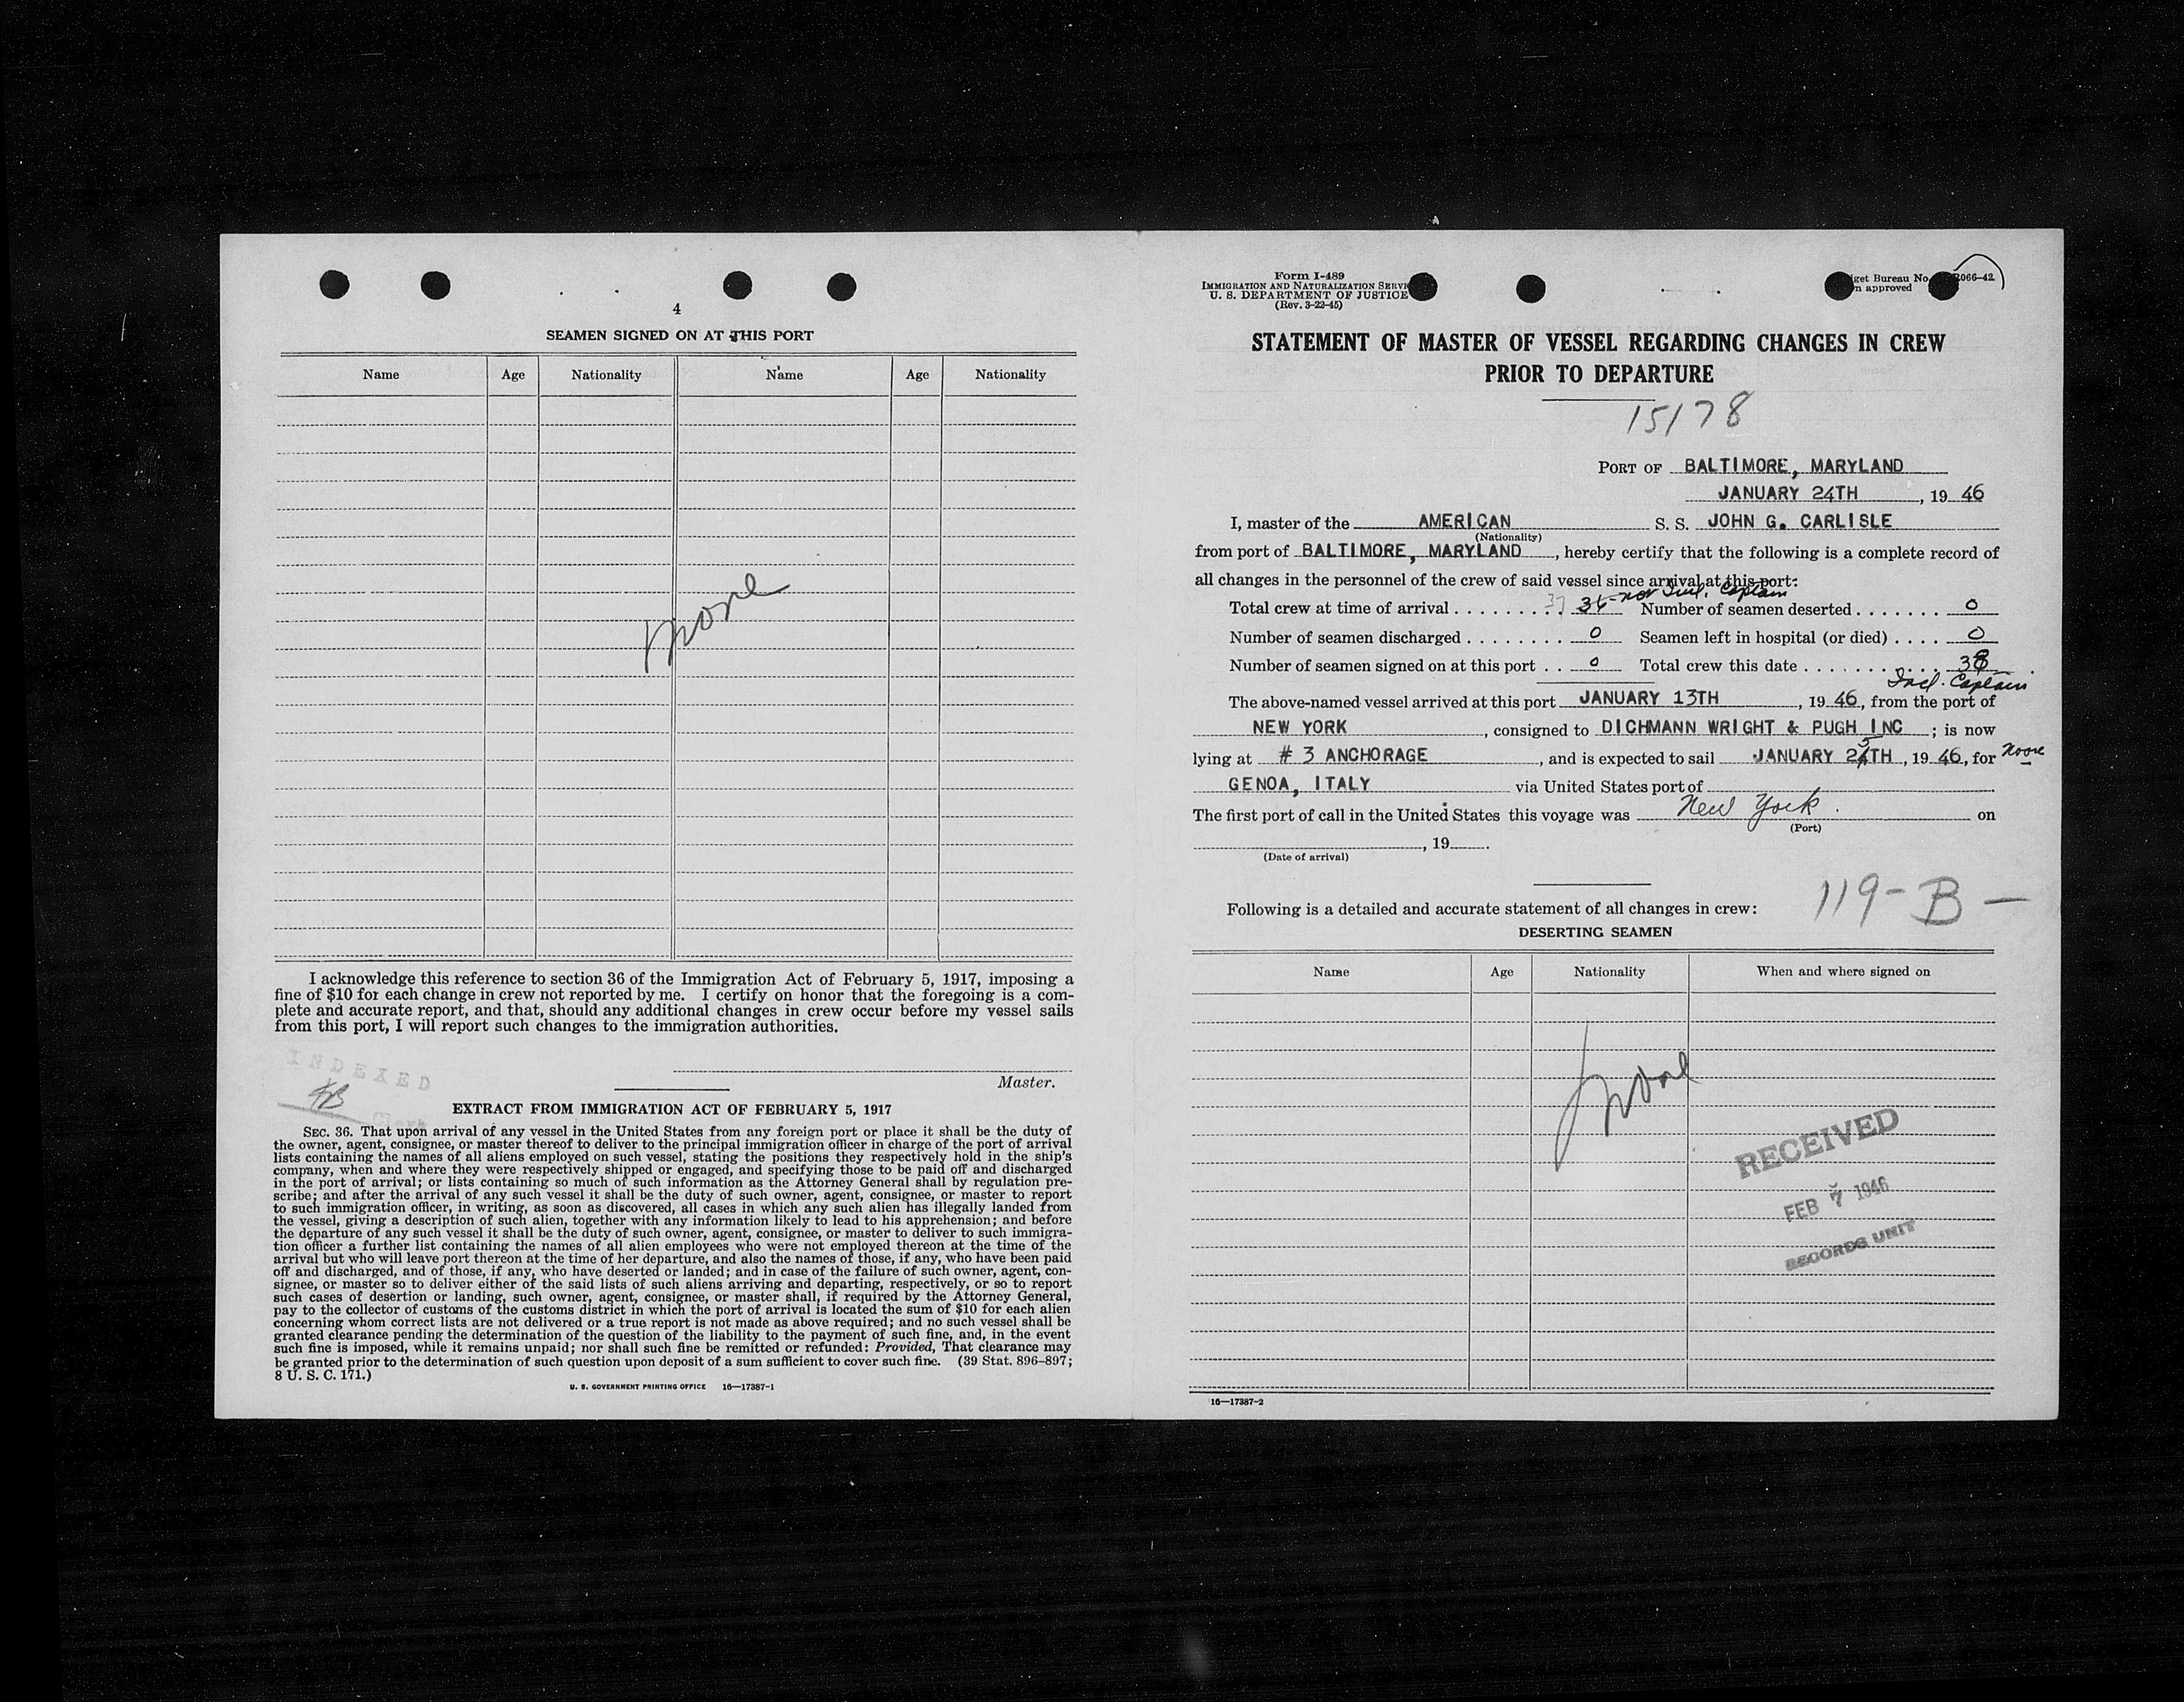 4
SEAMEN SIGNED ON AT THIS PORT
Name Age Nationality Name Age Nationality
none
I acknowledge this reference to section 36 of the Immigration Act of February 5, 1917, imposing a
fine of $10 for each change in crew not reported by me. I certify on honor that the foregoing is a com-
plete and accurate report, and that, should any additional changes in crew occur before my vessel sails
from this port, I will report such changes to the immigration authorities.
INDEXED
Master.
EXTRACT FROM IMMIGRATION ACT OF FEBRUARY 5, 1917
SEC. 36. That upon arrival of any vessel in the United States from any foreign port or place it shall be the duty of
the owner, agent, consignee, or master thereof to deliver to the principal immigration officer in charge of the port of arrival
lists containing the names of all aliens employed on such vessel, stating the positions they respectively hold in the ship's
company, when and where they were respectively shipped or engaged, and specifying those to be paid off and discharged
in the port of arrival; or lists containing so much of such information as the Attorney General shall by regulation pre-
scribe; and after the arrival of any such vessel it shall be the duty of such owner, agent, consignee, or master to report
to such immigration officer, in writing, as soon as discovered, all cases in which any such alien has illegally landed from
the vessel, giving a description of such alien, together with any information likely to lead to his apprehension; and before
the departure of any such vessel it shall be the duty of such owner, agent, consignee, or master to deliver to such immigra-
tion officer a further list containing the names of all alien employees who were not employed thereon at the time of the
arrival but who will leave port thereon at the time of her departure, and also the names of those, if any, who have been paid
off and discharged, and of those, if any, who have deserted or landed; and in case of the failure of such owner, agent, con-
signee, or master so to deliver either of the said lists of such aliens arriving and departing, respectively, or so to report
such cases of desertion or landing, such owner, agent, consignee, or master shall, if required by the Attorney General,
pay to the collector of customs of the customs district in which the port of arrival is located the sum of $10 for each alien
concerning whom correct lists are not delivered or a true report is not made as above required; and no such vessel shall be
granted clearance pending the determination of the question of the liability to the payment of such fine, and, in the event
such fine is imposed, while it remains unpaid; nor shall such fine be remitted or refunded: Provided, That clearance may
be granted prior to the determination of such question upon deposit of a sum sufficient to cover such fine. (39 Stat. 896–897;
8 U. S. C. 171.)
U. S. GOVERNMENT PRINTING OFFICE 16—17387-1
Form I-489
IMMIGRATION AND NATURALIZATION SERVI
U. S. DEPARTMENT OF JUSTICE
(Rev. 3-22-45)
get Bureau No. 066-42
n approved
STATEMENT OF MASTER OF VESSEL REGARDING CHANGES IN CREW
PRIOR TO DEPARTURE
15178
PORT OF BALTIMORE, MARYLAND
JANUARY 24TH, 19 46
I, master of the AMERICAN S. S. JOHN G. CARLISLE
(Nationality)
from port of BALTIMORE, MARYLAND, hereby certify that the following is a complete record of
all changes in the personnel of the crew of said vessel since arrival at this port:
not Incl. Captain
Total crew at time of arrival . . . . . . . . . 37 36 Number of seamen deserted . . . . . . . 0
Number of seamen discharged . . . . . . . . 0 Seamen left in hospital (or died) . . . . 0
Number of seamen signed on at this port . . 0 Total crew this date . . . . . . . . . . . . 38
Incl. Captain
The above-named vessel arrived at this port JANUARY 13TH, 19 46, from the port of
NEW YORK, consigned to DICHMANN WRIGHT & PUGH INC ; is now
lying at # 3 ANCHORAGE, and is expected to sail JANUARY 25TH, 19 46, for None
GENOA, ITALY via United States port of
The first port of call in the United States this voyage was New York. on
(Port)
, 19
(Date of arrival)
119-B-
Following is a detailed and accurate statement of all changes in crew:
DESERTING SEAMEN
Name Age Nationality When and where signed on
none
RECEIVED
FEB 7 1946
RECORDS UNIT
16—17387-2